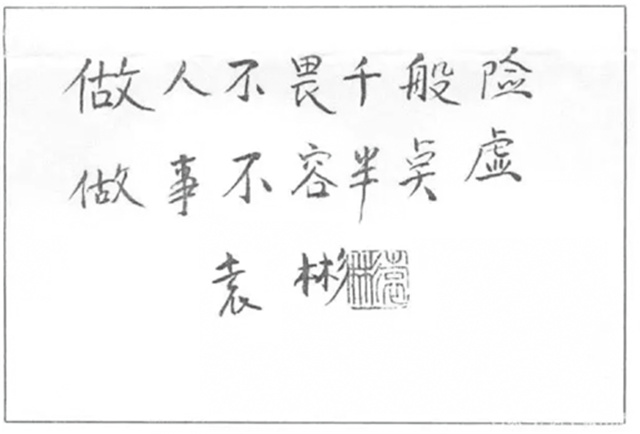 做人不畏千般险
做事不容半点虚
袁彬